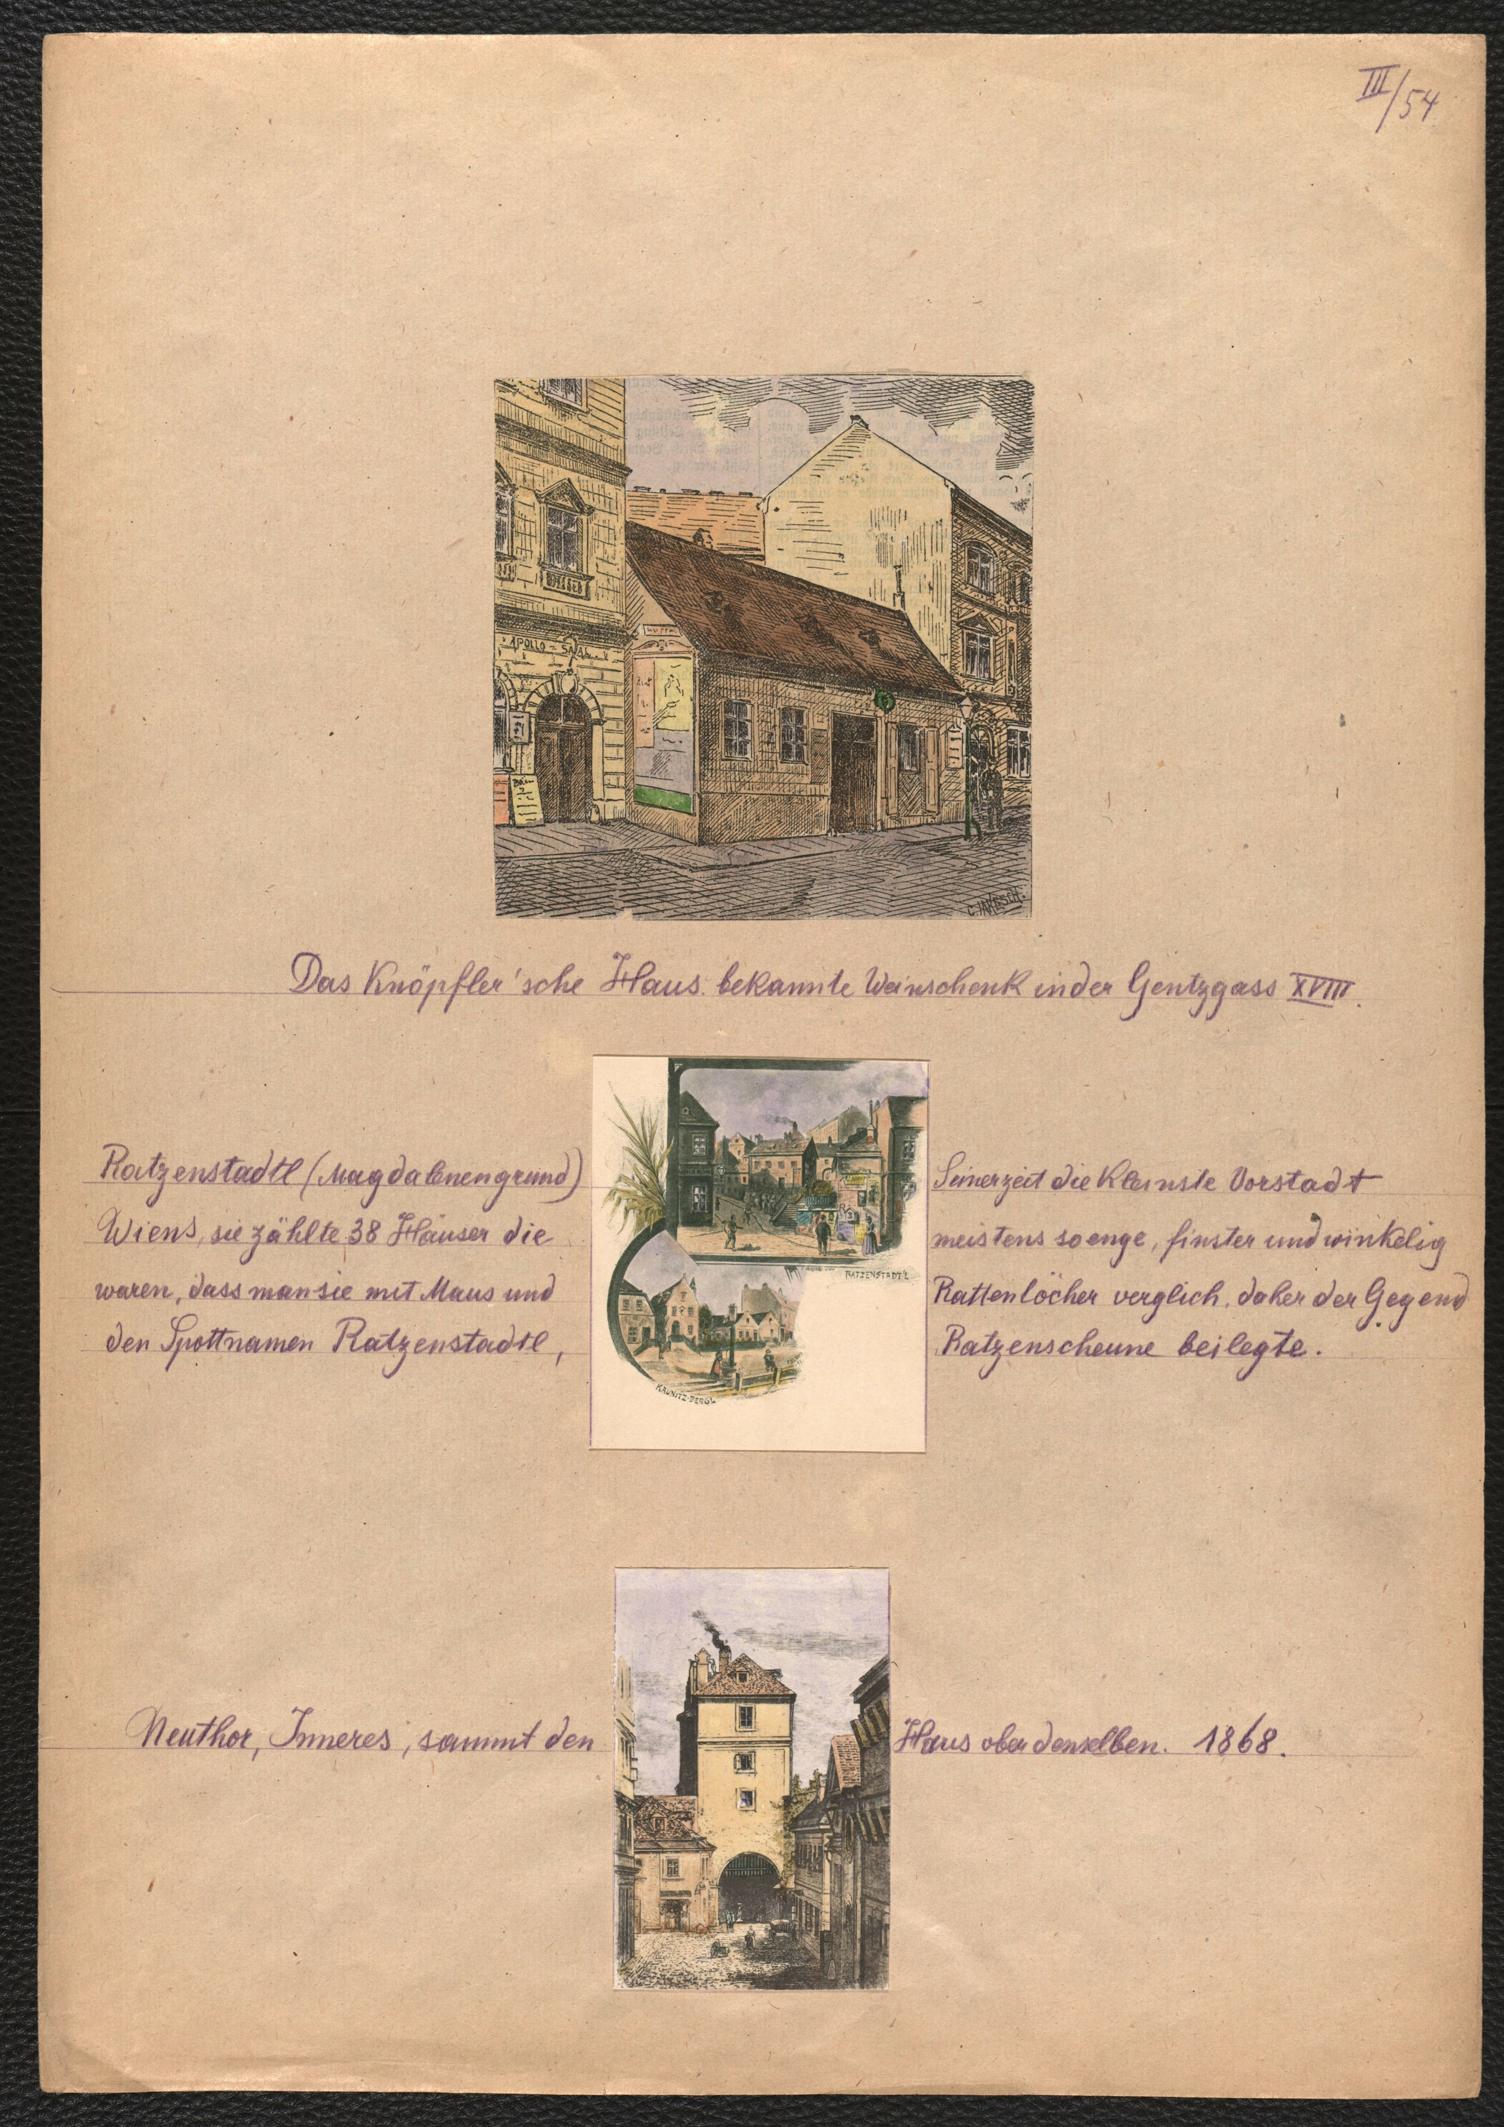 III/54
APOLLO - SAAL
C. JAKESCH.
Das Knöpfler'sche Haus. bekannte Weinschenk in der Gentzgass XVIII.
Ratzenstadtl (Magdalenengrund) Seinerzeit die kleinste Vorstadt
Wiens, sie zählte 38 Häuser die meistens so enge, finster und winkelig
waren, dass man sie mit Maus und Rattenlöcher verglich, daher der Gegend
den Spottnamen Ratzenstadtl, Ratzenscheune beilegte.
RATZENSTADT'L
KAUNITZ-BERGL
Neuthor, Inneres, sammt den Haus ober denselben. 1868.